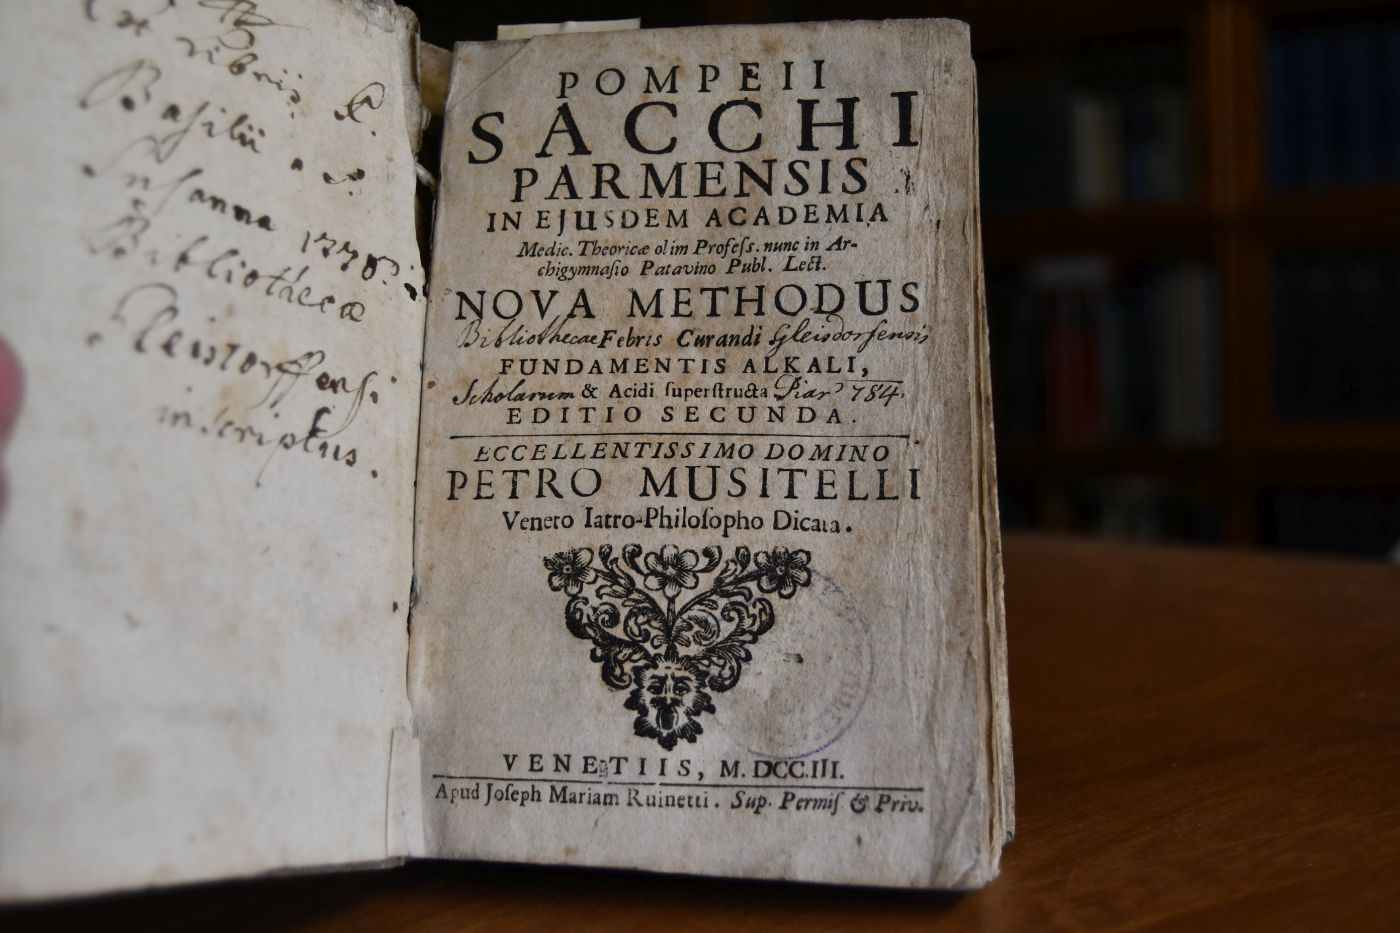 Ex Libriis P.
Basilii a S.
Susanna 1778.
Bibliothecæ
Gleistorffensi
inscriptus.
POMPEII
SACCHI
PARMENSIS
IN EJUSDEM ACADEMIA
Medic. Theoricæ olim Profeſs. nunc in Ar-
chigymnaſio Patavino Publ. Lect.
NOVA METHODUS
Bibliothecae Febris Curandi Gleisdorfensis
FUNDAMENTIS ALKALI,
Scholarum & Acidi ſuperſtructa. Piar. 784.
EDITIO SECUNDA.
ECCELLENTISSIMO DOMINO
PETRO MUSITELLI
Veneto Iatro-Philoſopho Dicata.
VENETIIS, M. DCC.III.
Apud Joſeph Mariam Ruinetti. Sup. Permiſ & Priv.